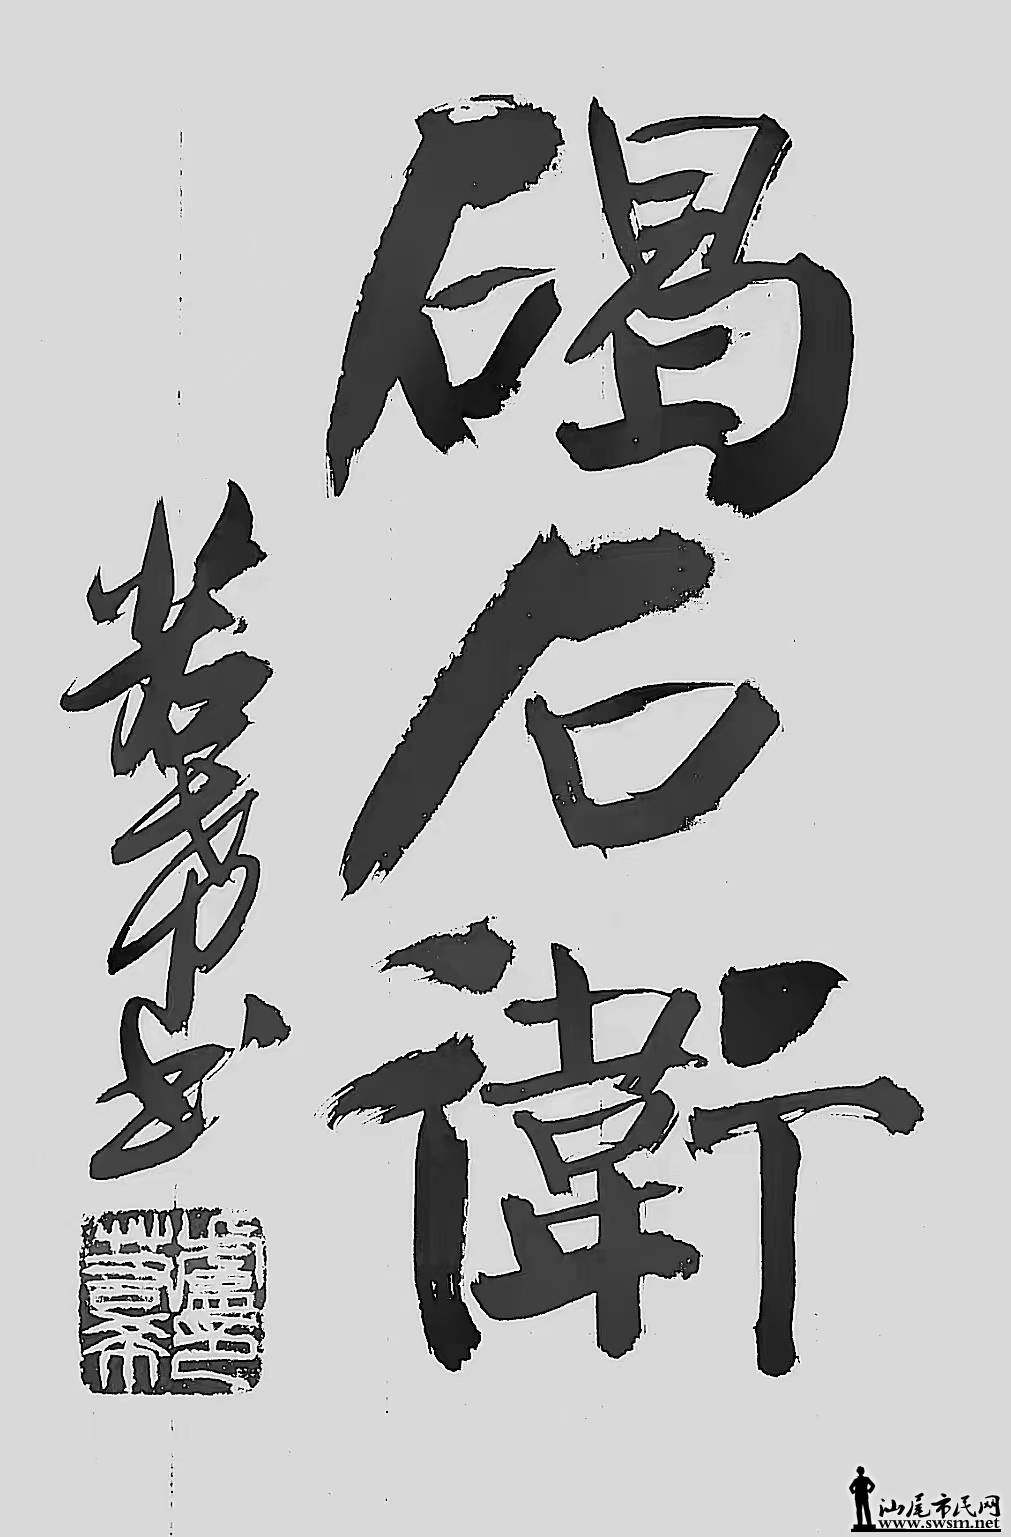 碣石衛
若希书
汕尾市民网
www.swsm.net